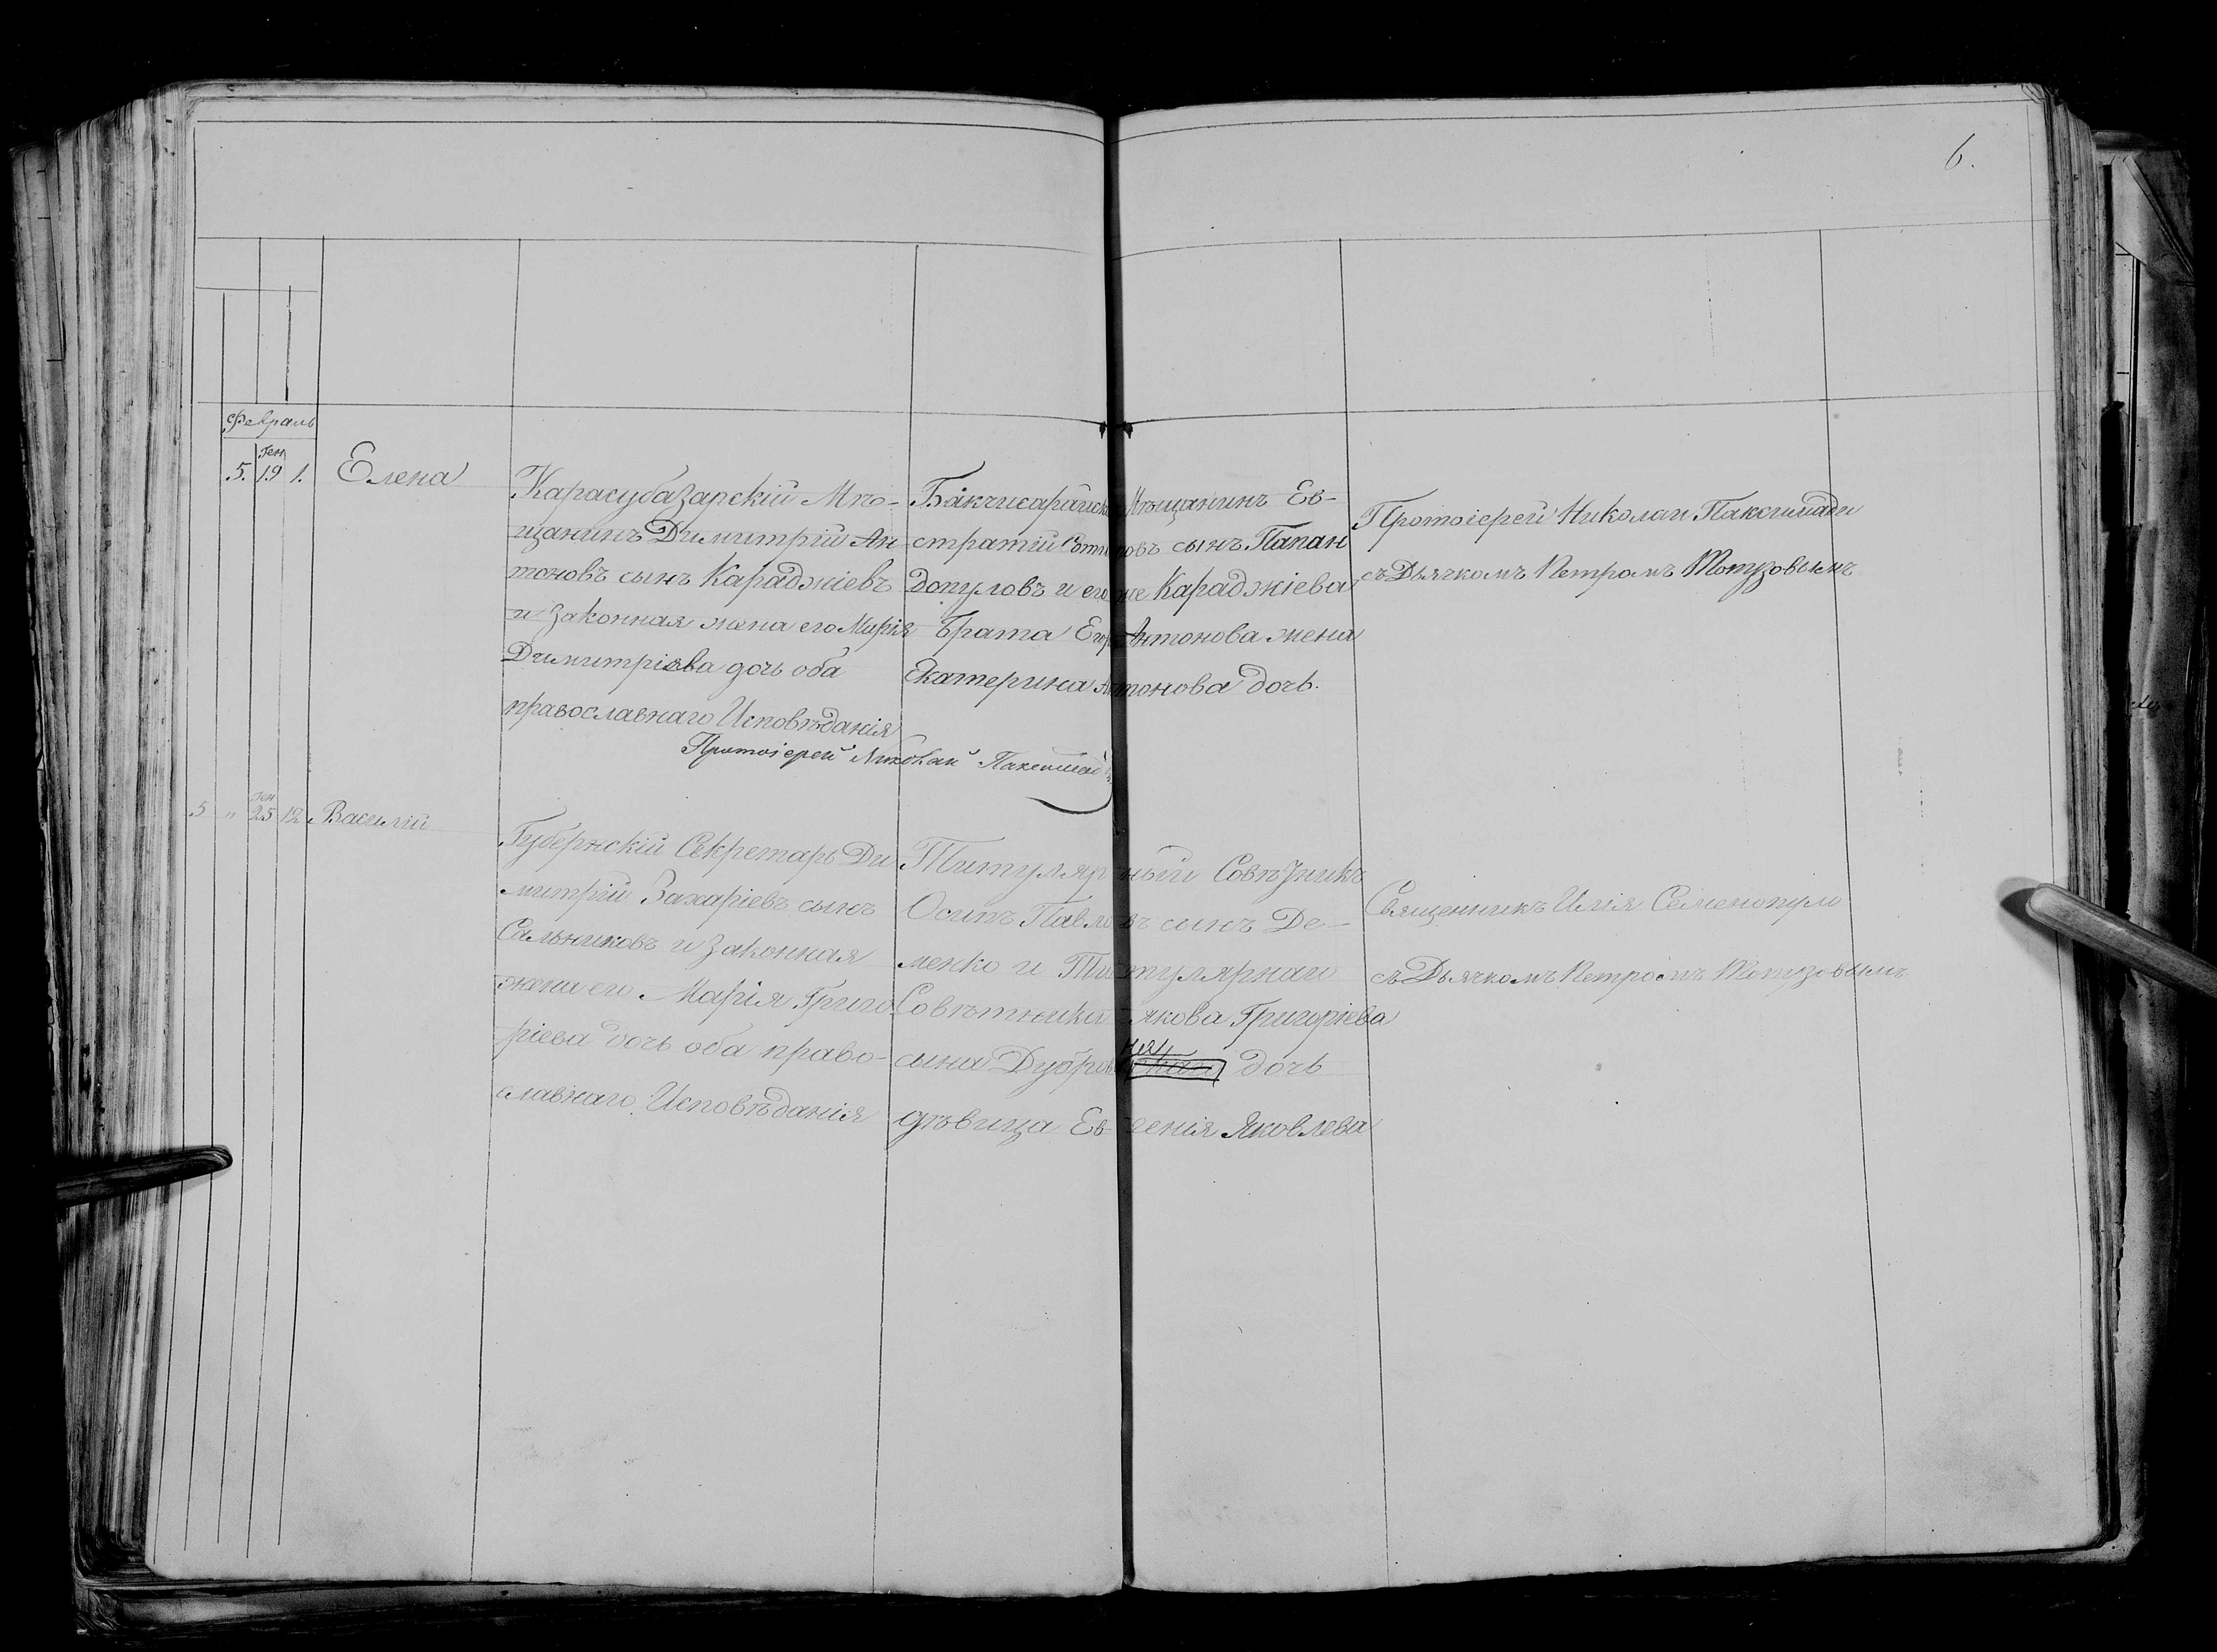 6.
Февраль
Ген
5. 19 1. Елена
Карасубазарскій Мѣ-
щанинъ Димитрій Ан-
тоновъ сынъ Караджіевъ
и законная жена его Марія
Димитріева дочь оба
православнаго Исповѣданія
Бакчисарайск Мѣщанинъ Ев-
стратій сынъ Папан
допуловъ и его же Караджіева
брата Антонова жена
Екатерина Антонова дочь.
Протоіерей Николаи Паксимади
съ Дьячкомъ Петромъ Топузовымъ
Протоіерей Николай Паксимади
Ген
5 " 25 12 Василій
Губернскій Секретарь Ди
митрій Захаріевъ сынъ
Сальниковъ и законная
жена его Марія Григо
ріева дочь оба право-
славнаго Исповѣданія
Титулярный Совѣтникъ
Осипъ Павловъ сынъ Де-
менко и Титулярнаго
Совѣтника Якова Григоріева
сына дочь
дѣвица Евгенія Яковлева
Священникъ Илія
съ Дьячкомъ Петромъ Топузовымъ